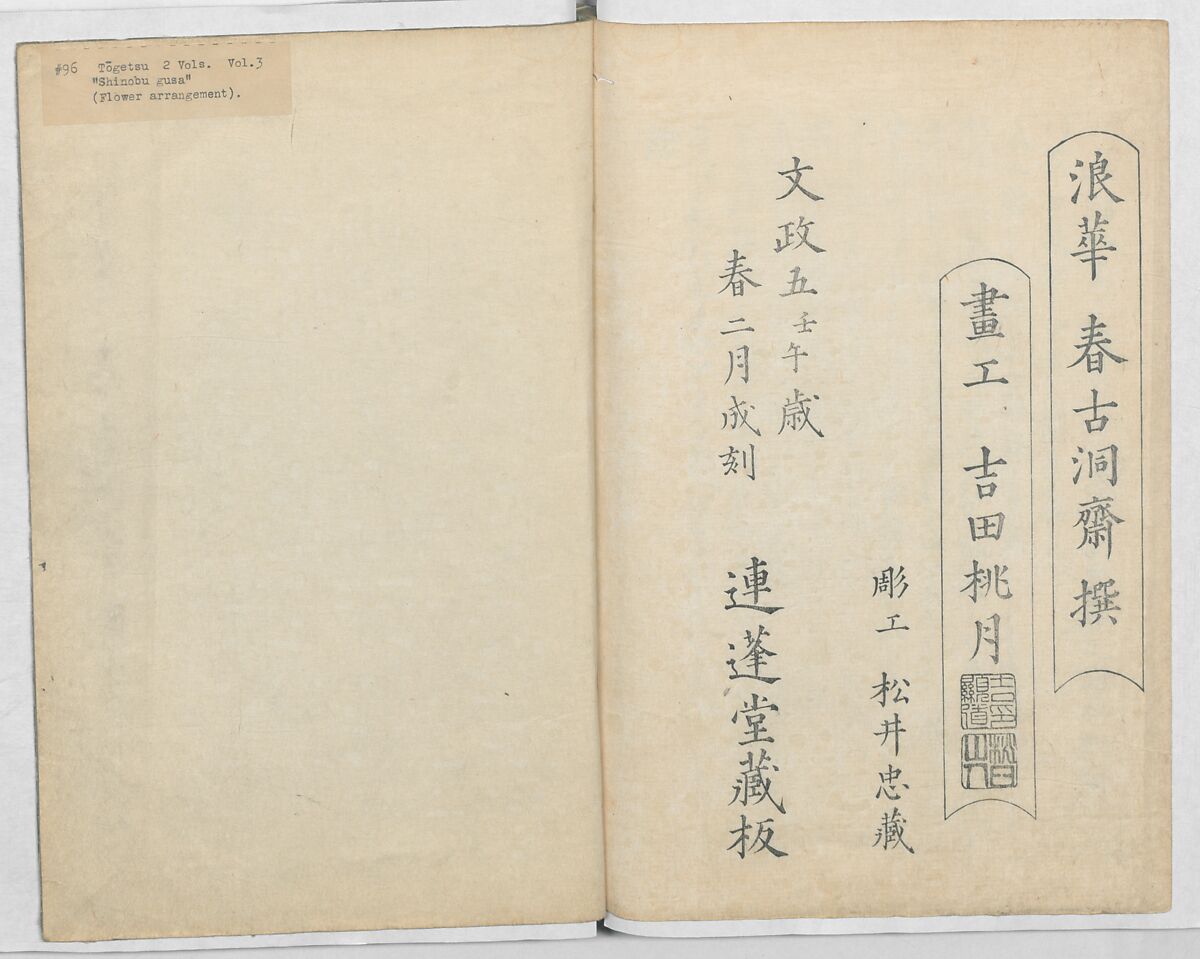 #96 Tōgetsu 2 Vols. Vol.3
"Shinobu gusa"
(Flower arrangement).
浪華 春古洞齋 撰
畫工 吉田桃月
彫工 松井忠藏
文政五壬午歳
春二月成刻
連蓬堂藏板